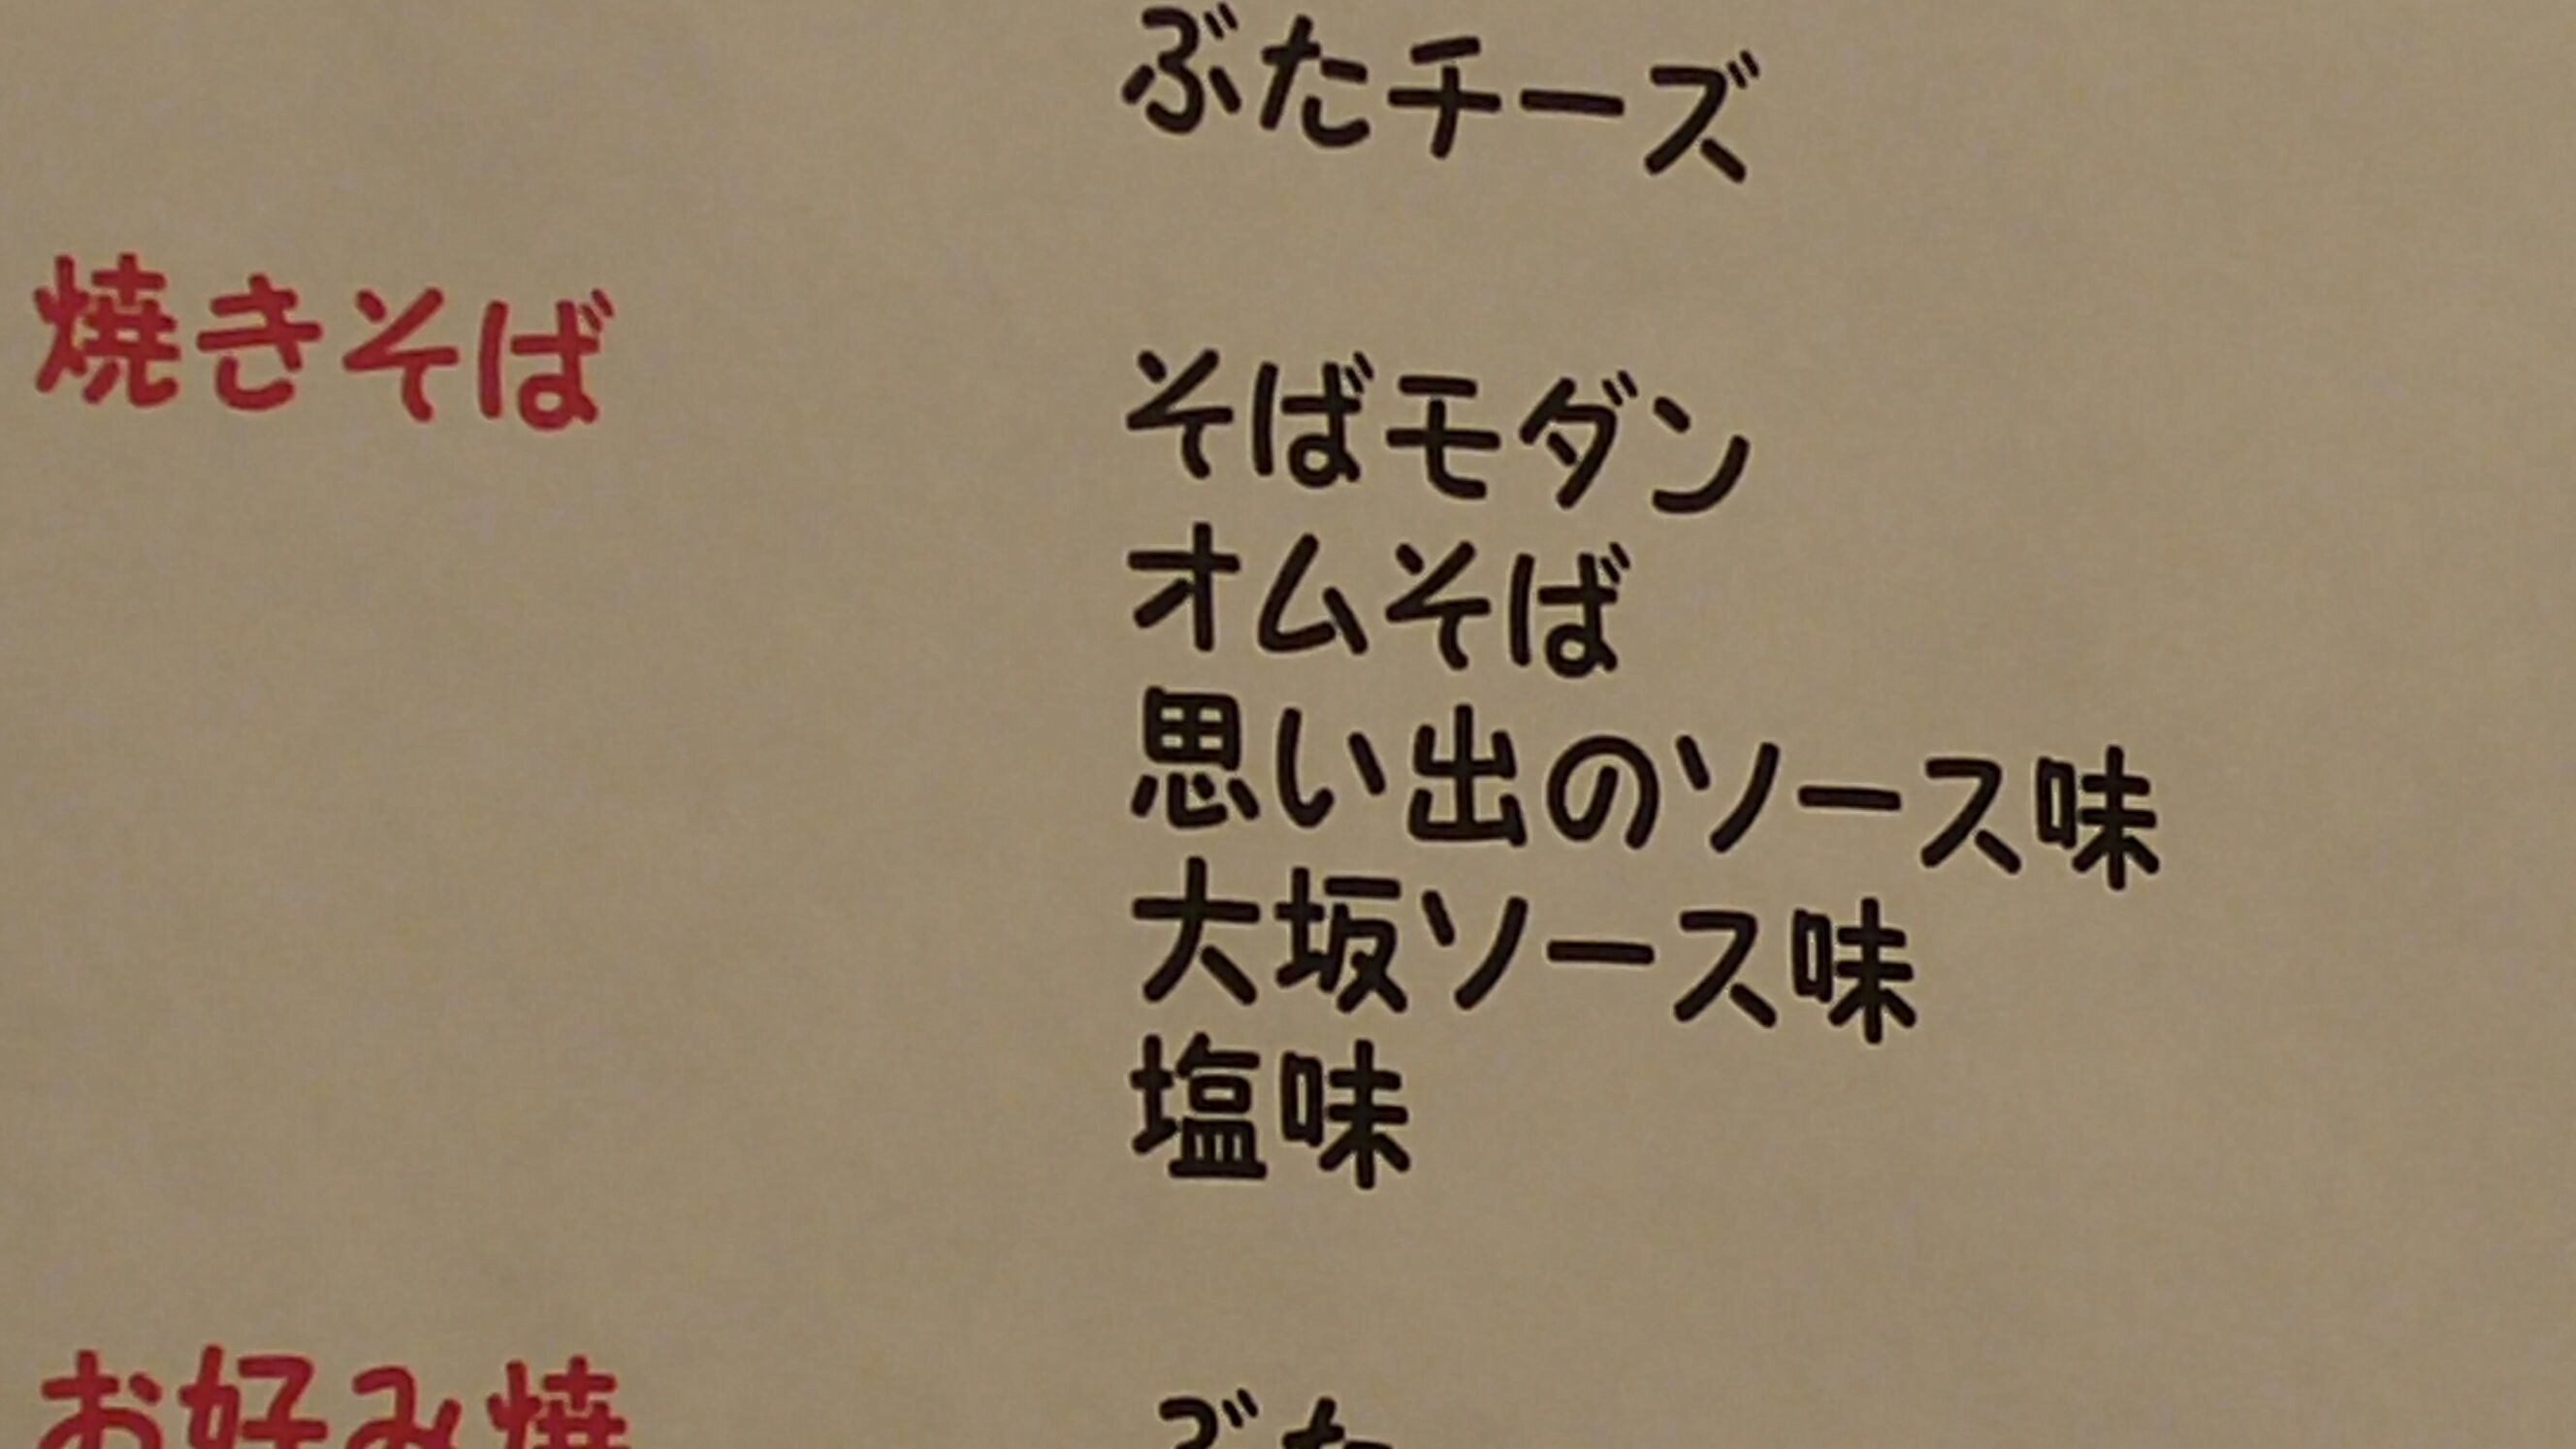 ぶたチーズ
焼きそば
そばモダン
オムそば
思い出のソース味
大坂ソース味
塩味
お好み焼
ぶた